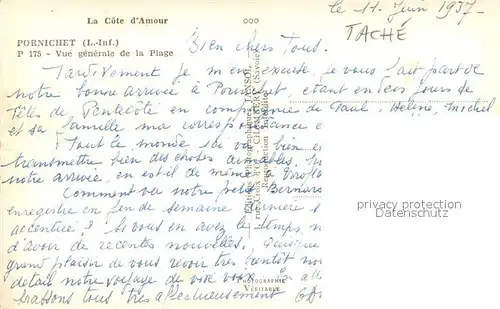 La Côte d'Amour
PORNICHET (L.-Inf.)
P 175 - Vue générale de la Plage
le 11 Juin 1937-
TACHÉ
Bien chers Tous.
Tardivement je m'en excuse, je vous fait part de
notre bonne arrivée à Pornichet, étant en les jours de
fêtes de Pentecôte en compagnie de Paul, Hélène, Michel
et sa famille ma correspondance e
Tout le monde ici va bien e
transmettre bien des choses aimables,
notre arrivée, en est il de même à
Comment va notre petit Bernard
enregistré en fin de semaine dernière s
accentue ? Si vous en avez le temps, n
d'avoir de récentes nouvelles. Quoique
grand plaisir de vous revoir très bientôt
détail notre voyage de vive voix
brassons tous très affectueusement
PHOTOGRAPHIE
VÉRITABLE
privacy protection
Datenschutz